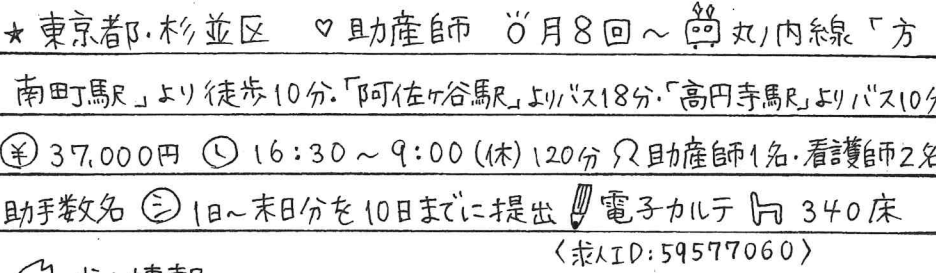 ★東京都・杉並区 ♡助産師 月8回～ 丸ノ内線「方
南町駅」より徒歩10分・「阿佐ヶ谷駅」よりバス18分・「高円寺駅」よりバス10分
¥ 37,000円 16:30～9:00(休)120分 助産師1名・看護師2名
助手数名 シ 1日～末日分を10日までに提出 電子カルテ 340床
〈求人ID:59577060〉